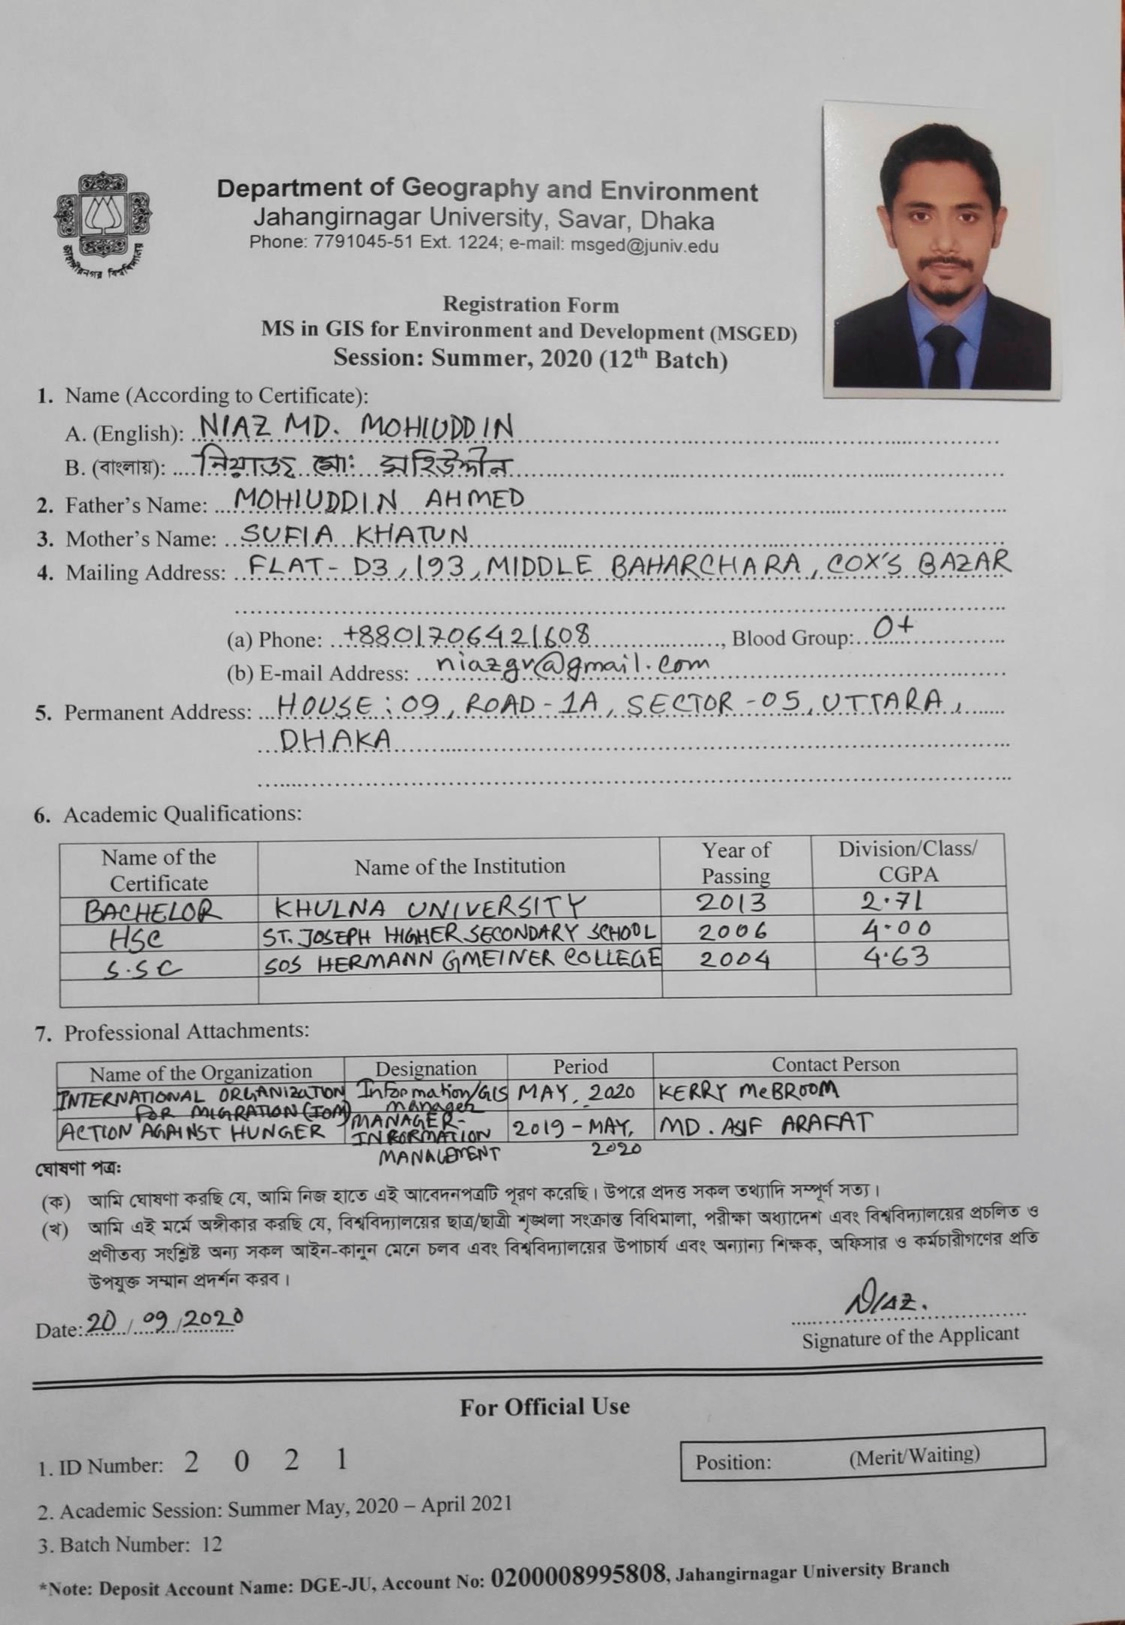 জাহাঙ্গীরনগর বিশ্ববিদ্যালয়
Department of Geography and Environment
Jahangirnagar University, Savar, Dhaka
Phone: 7791045-51 Ext. 1224; e-mail: msged@juniv.edu
Registration Form
MS in GIS for Environment and Development (MSGED)
Session: Summer, 2020 (12th Batch)
1. Name (According to Certificate):
A. (English): NIAZ MD. MOHIUDDIN
B. (বাংলায়): নিয়াজ মোঃ মহিউদ্দীন
2. Father's Name: MOHIUDDIN AHMED
3. Mother's Name: SUFIA KHATUN
4. Mailing Address: FLAT- D3, 193, MIDDLE BAHARCHARA, COX'S BAZAR
(a) Phone: +8801706421608, Blood Group: O+
(b) E-mail Address: niazgv@gmail.com
5. Permanent Address: HOUSE: 09, ROAD-1A, SECTOR-05, UTTARA,
DHAKA
6. Academic Qualifications:
Name of the Certificate Name of the Institution Year of Passing Division/Class/CGPA
BACHELOR KHULNA UNIVERSITY 2013 2.71
HSC ST. JOSEPH HIGHER SECONDARY SCHOOL 2006 4.00
S.SC SOS HERMANN GMEINER COLLEGE 2004 4.63
7. Professional Attachments:
Name of the Organization Designation Period Contact Person
INTERNATIONAL ORGANIZATION FOR MIGRATION (IOM) Information/GIS Manager MAY, 2020 KERRY McBROOM
ACTION AGAINST HUNGER MANAGER-INFORMATION MANAGEMENT 2019 - MAY, 2020 MD. ASIF ARAFAT
ঘোষণা পত্র:
(ক) আমি ঘোষণা করছি যে, আমি নিজ হাতে এই আবেদনপত্রটি পূরণ করেছি। উপরে প্রদত্ত সকল তথ্যাদি সম্পূর্ণ সত্য।
(খ) আমি এই মর্মে অঙ্গীকার করছি যে, বিশ্ববিদ্যালয়ের ছাত্র/ছাত্রী শৃঙ্খলা সংক্রান্ত বিধিমালা, পরীক্ষা অধ্যাদেশ এবং বিশ্ববিদ্যালয়ের প্রচলিত ও
প্রণীতব্য সংশ্লিষ্ট অন্য সকল আইন-কানুন মেনে চলব এবং বিশ্ববিদ্যালয়ের উপাচার্য এবং অন্যান্য শিক্ষক, অফিসার ও কর্মচারীগণের প্রতি
উপযুক্ত সম্মান প্রদর্শন করব।
Date: 20/09/2020
NIAZ.
Signature of the Applicant
For Official Use
1. ID Number: 2 0 2 1
Position: (Merit/Waiting)
2. Academic Session: Summer May, 2020 – April 2021
3. Batch Number: 12
*Note: Deposit Account Name: DGE-JU, Account No: 0200008995808, Jahangirnagar University Branch